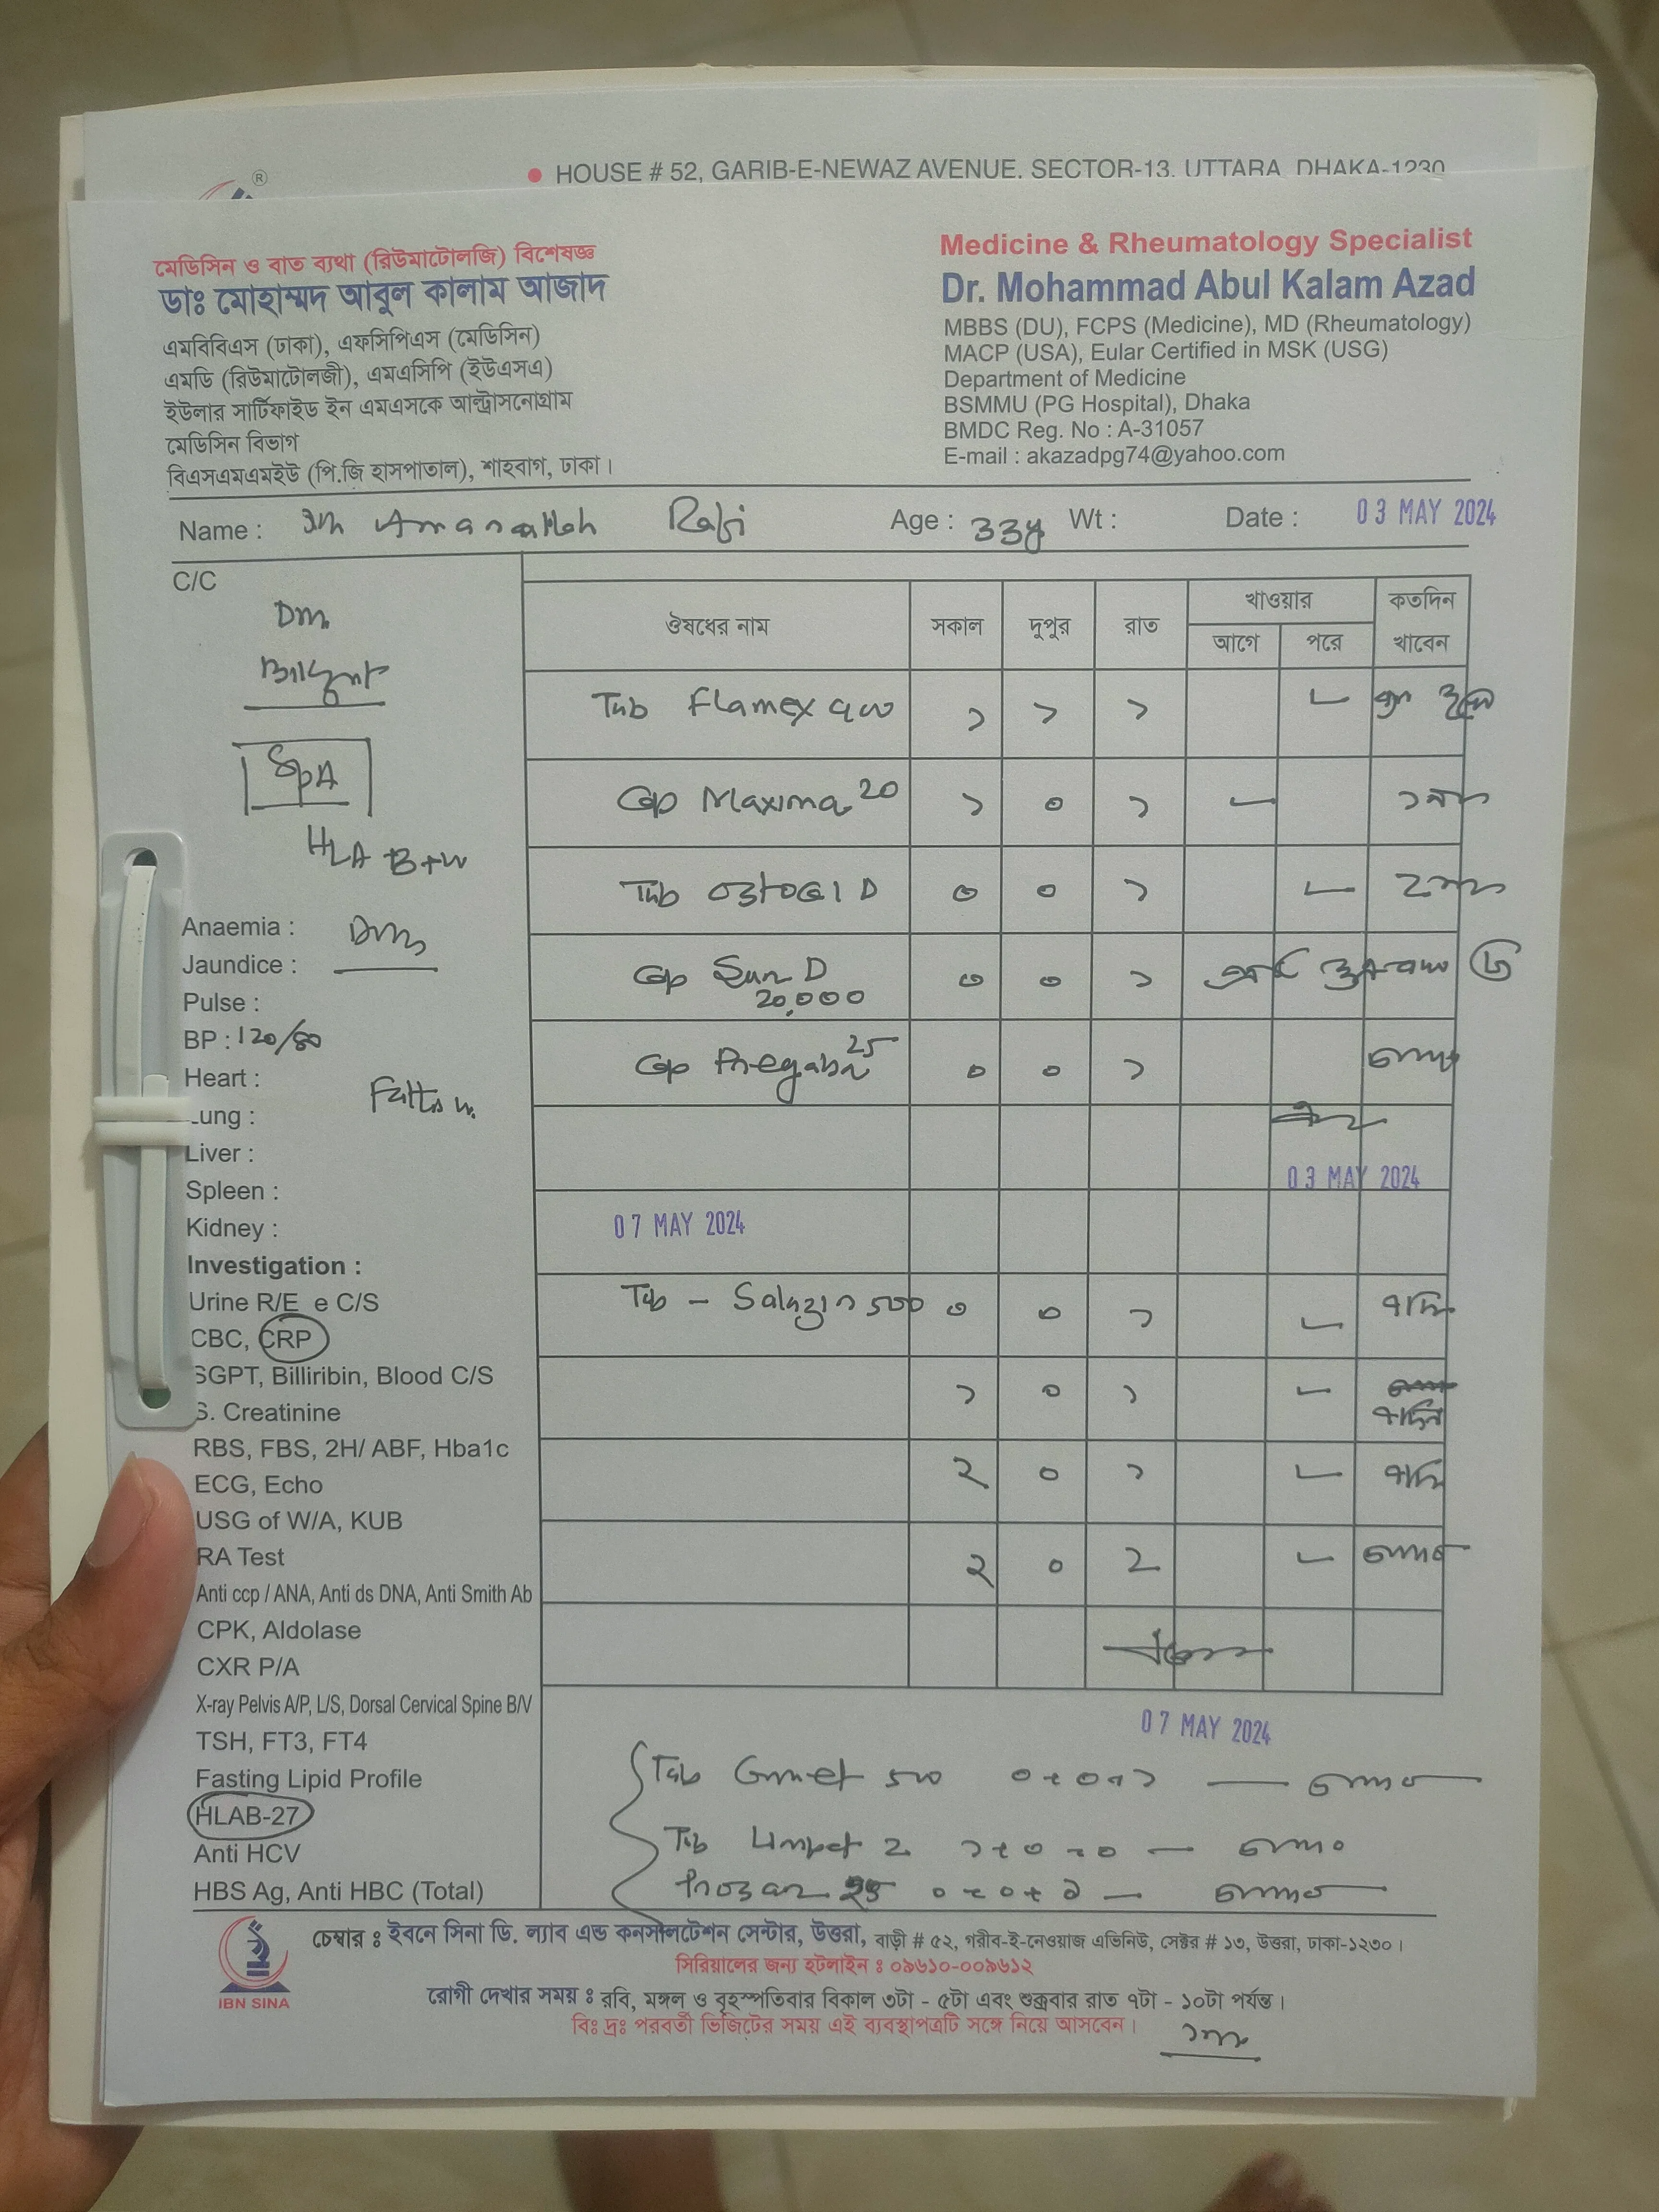 HOUSE # 52, GARIB-E-NEWAZ AVENUE. SECTOR-13. UTTARA DHAKA-1230
মেডিসিন ও বাত ব্যথা (রিউমাটোলজি) বিশেষজ্ঞ
ডাঃ মোহাম্মদ আবুল কালাম আজাদ
এমবিবিএস (ঢাকা), এফসিপিএস (মেডিসিন)
এমডি (রিউমাটোলজী), এমএসিপি (ইউএসএ)
ইউলার সার্টিফাইড ইন এমএসকে আল্ট্রাসনোগ্রাম
মেডিসিন বিভাগ
বিএসএমএমইউ (পি.জি হাসপাতাল), শাহবাগ, ঢাকা।
Medicine & Rheumatology Specialist
Dr. Mohammad Abul Kalam Azad
MBBS (DU), FCPS (Medicine), MD (Rheumatology)
MACP (USA), Eular Certified in MSK (USG)
Department of Medicine
BSMMU (PG Hospital), Dhaka
BMDC Reg. No : A-31057
E-mail : akazadpg74@yahoo.com
Name : Rafi Age : 33y Wt : Date : 03 MAY 2024
C/C
Dm
SpA
HLA B
Anaemia : Dm
Jaundice :
Pulse :
BP : 120/80
Heart :
Lung :
Liver :
Spleen :
Kidney :
Investigation :
Urine R/E e C/S
CBC, CRP
SGPT, Billiribin, Blood C/S
S. Creatinine
RBS, FBS, 2H/ ABF, Hba1c
ECG, Echo
USG of W/A, KUB
RA Test
Anti ccp / ANA, Anti ds DNA, Anti Smith Ab
CPK, Aldolase
CXR P/A
X-ray Pelvis A/P, L/S, Dorsal Cervical Spine B/V
TSH, FT3, FT4
Fasting Lipid Profile
HLAB-27
Anti HCV
HBS Ag, Anti HBC (Total)
ঔষধের নাম সকাল দুপুর রাত খাওয়ার আগে পরে কতদিন খাবেন
Tab Flamex ১ ১ ১
Cap Maxima 20 ১ ০ ১
Tab Ostocal D ০ ০ ১
Cap Sun D 20,000 ০ ০ ১
Cap Pregaba 25 ০ ০ ১
03 MAY 2024
07 MAY 2024
Tab - Salazin 500 ০ ০ ১
১ ০ ১
২ ০ ১
২ ০ ২
07 MAY 2024
Tab 500 ০+০+১
Tab Limpet 2 ১+০+০
২৫ ০+০+১
চেম্বার ঃ ইবনে সিনা ডি. ল্যাব এন্ড কনসালটেশন সেন্টার, উত্তরা, বাড়ী # ৫২, গরীব-ই-নেওয়াজ এভিনিউ, সেক্টর # ১৩, উত্তরা, ঢাকা-১২৩০।
সিরিয়ালের জন্য হটলাইন ঃ ০৯৬১০-০০৯৬১২
রোগী দেখার সময় ঃ রবি, মঙ্গল ও বৃহস্পতিবার বিকাল ৩টা - ৫টা এবং শুক্রবার রাত ৭টা - ১০টা পর্যন্ত।
বিঃ দ্রঃ পরবর্তী ভিজিটের সময় এই ব্যবস্থাপত্রটি সঙ্গে নিয়ে আসবেন।
IBN SINA